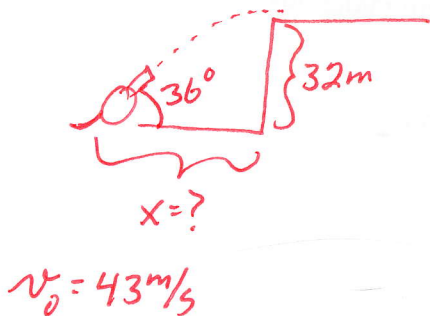 36°
32m
x=?
v₀ = 43 m/s